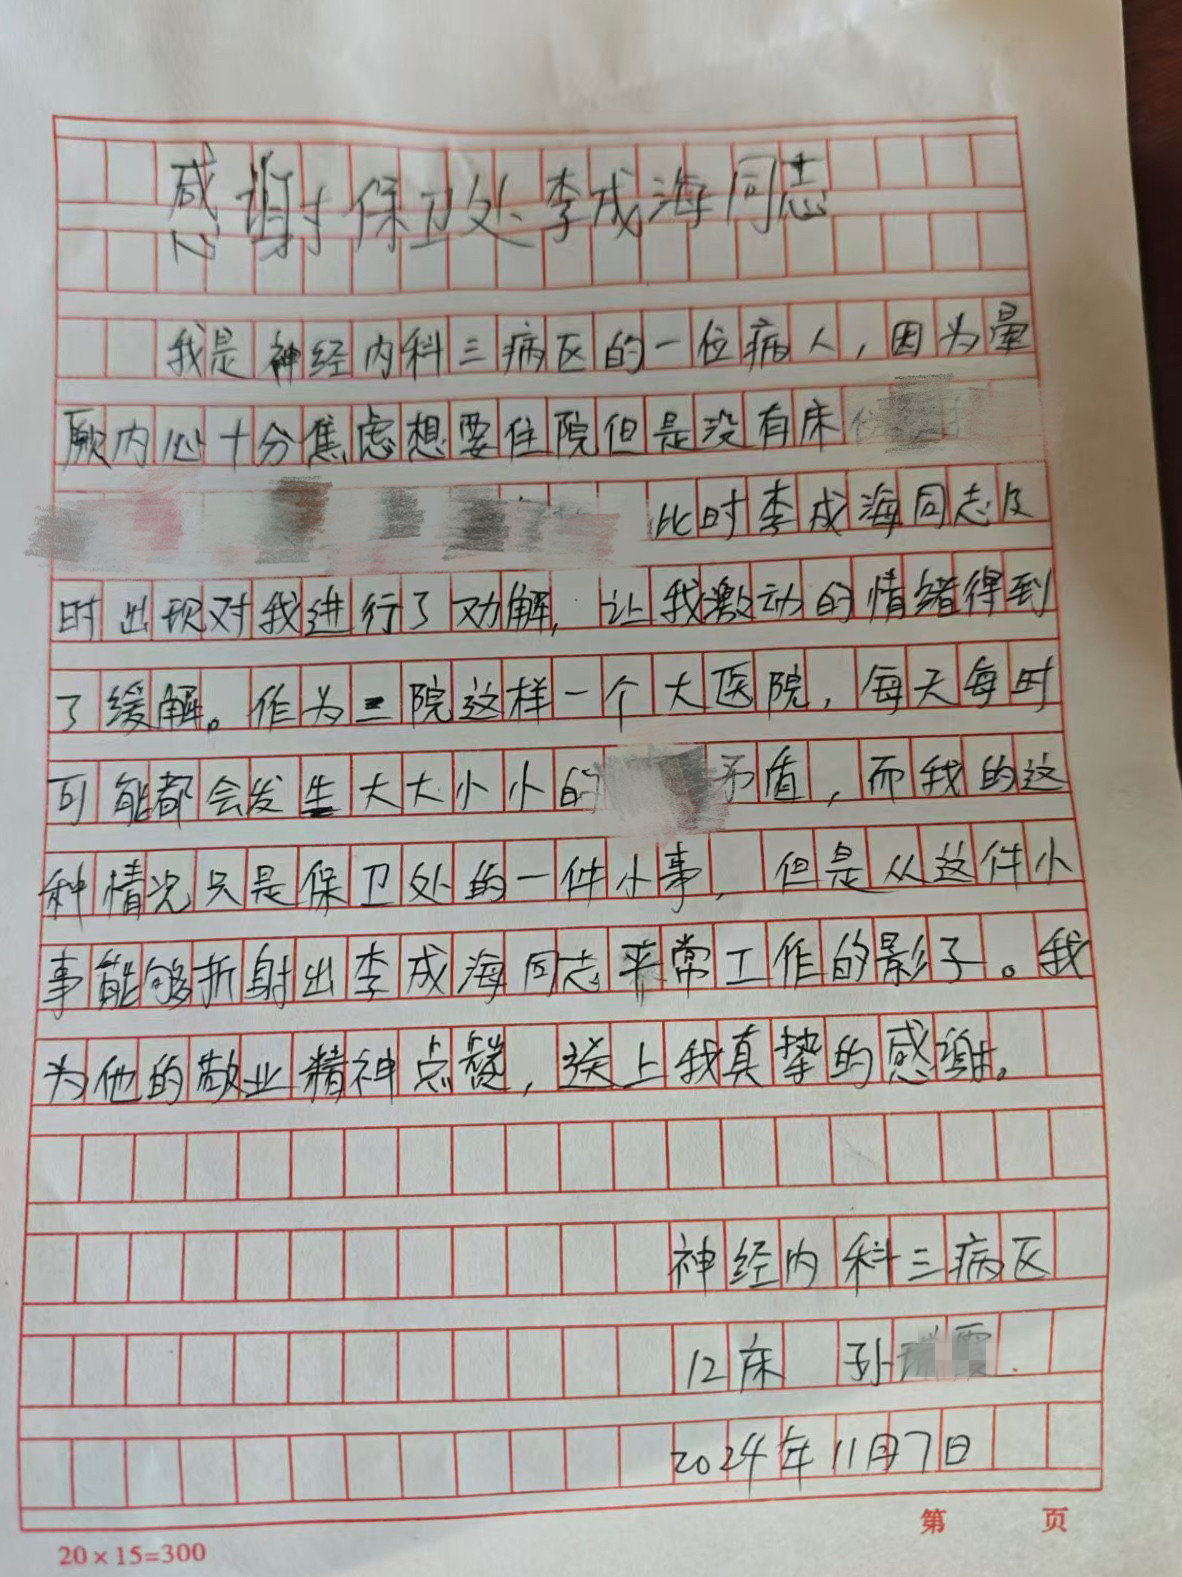 感谢保卫处李成海同志
我是神经内科三病区的一位病人，因为晕
厥内心十分焦虑想要住院但是没有床
此时李成海同志及
时出现对我进行了劝解，让我激动的情绪得到
了缓解。作为二院这样一个大医院，每天每时
可能都会发生大大小小的矛盾，而我的这
种情况只是保卫处的一件小事，但是从这件小
事能够折射出李成海同志平常工作的影子。我
为他的敬业精神点赞，送上我真挚的感谢。
神经内科三病区
12床 孙
2024年11月7日
第 页
20×15=300